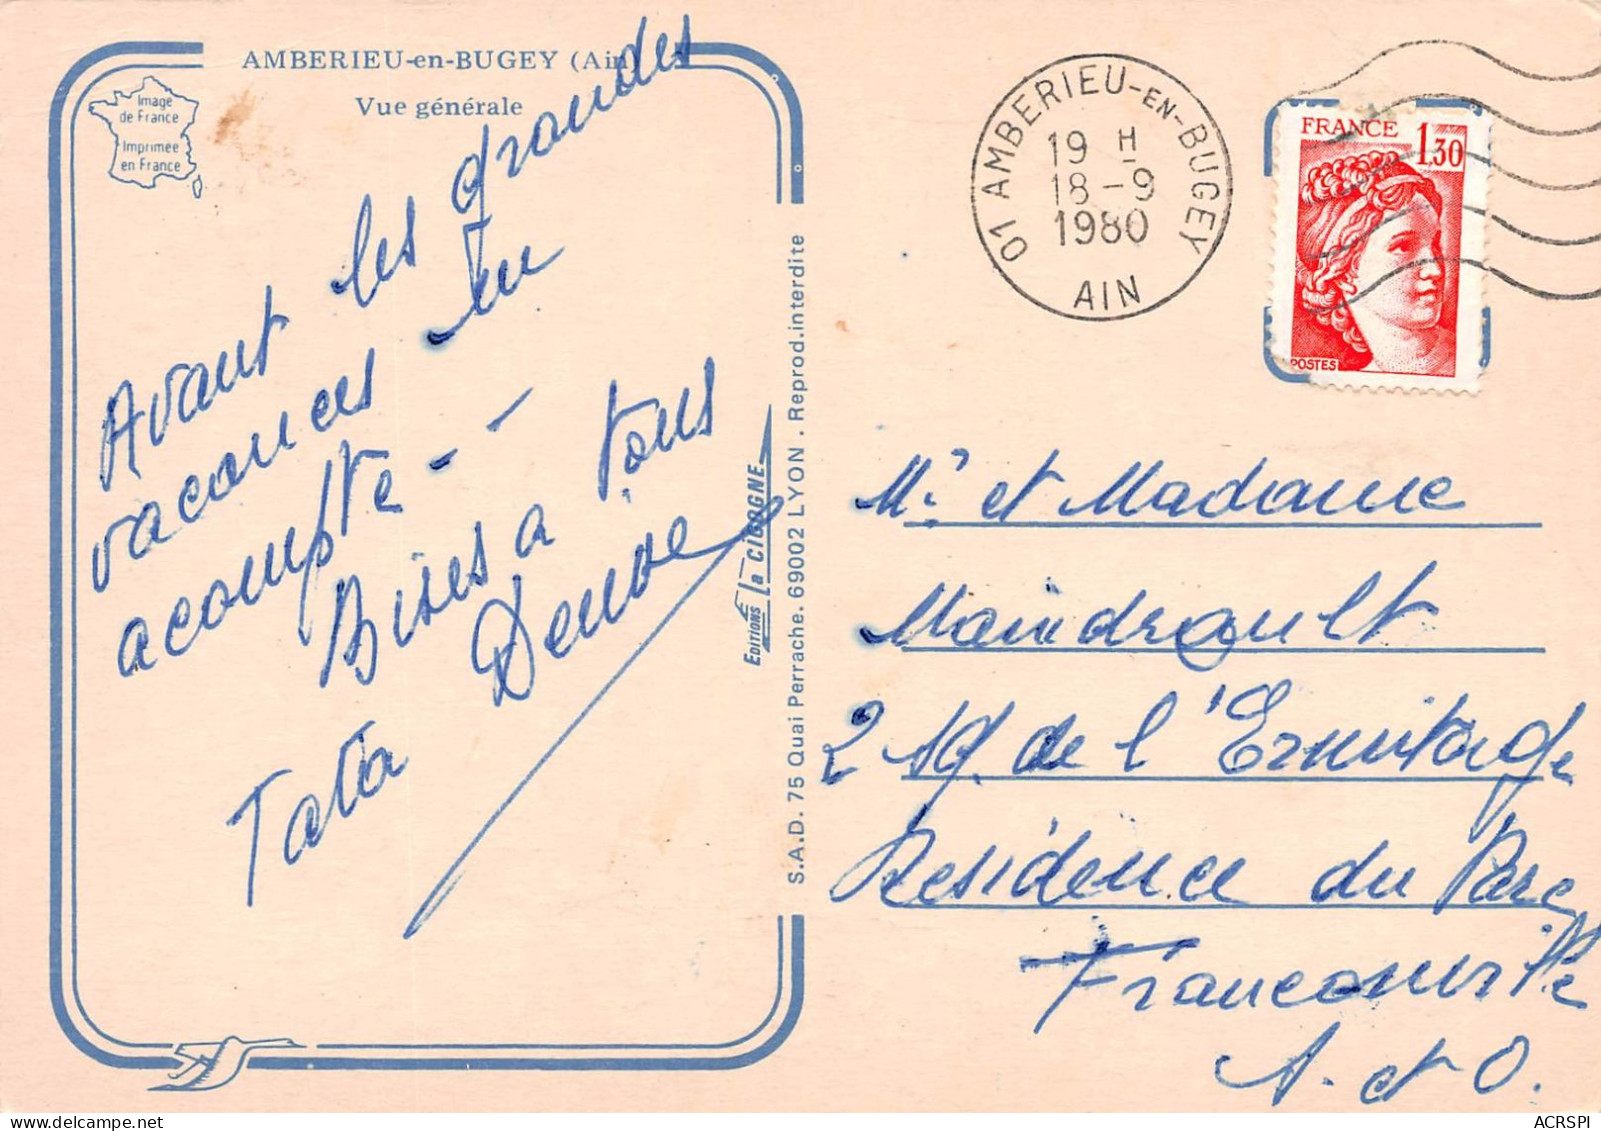 AMBERIEU-en-BUGEY (Ain)
Vue générale
Image
de France
Imprimée
en France
Avant les grandes
vacances - un
acompte - -
Bises a tous
Tata Denise
EDITIONS La CIGOGNE
S.A.D. 75 Quai Perrache. 69002 LYON . Reprod.interdite
01 AMBERIEU-EN-BUGEY
19 H
18 - 9
1980
AIN
FRANCE
1,30
POSTES
Mr et Madame
Maindrault
2 Aq. de l'Ermitage
Residence du Parc
Franconville
S. et O.
ACRSPI